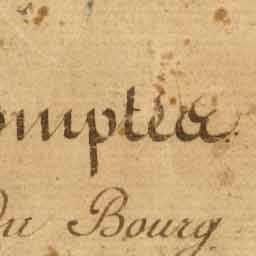 omptea
Du Bourg